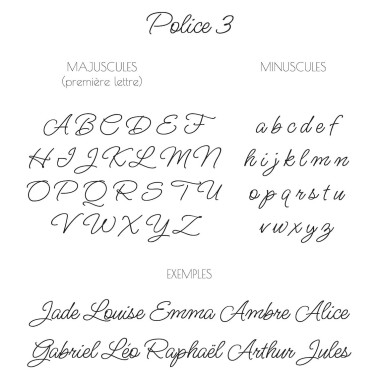 Police 3
MAJUSCULES
(première lettre)
A B C D E F
H I J K L M N
O P Q R S T U
V W X Y Z
MINUSCULES
a b c d e f
h i j k l m n
o p q r s t u
v w x y z
EXEMPLES
Jade Louise Emma Ambre Alice
Gabriel Léo Raphaël Arthur Jules